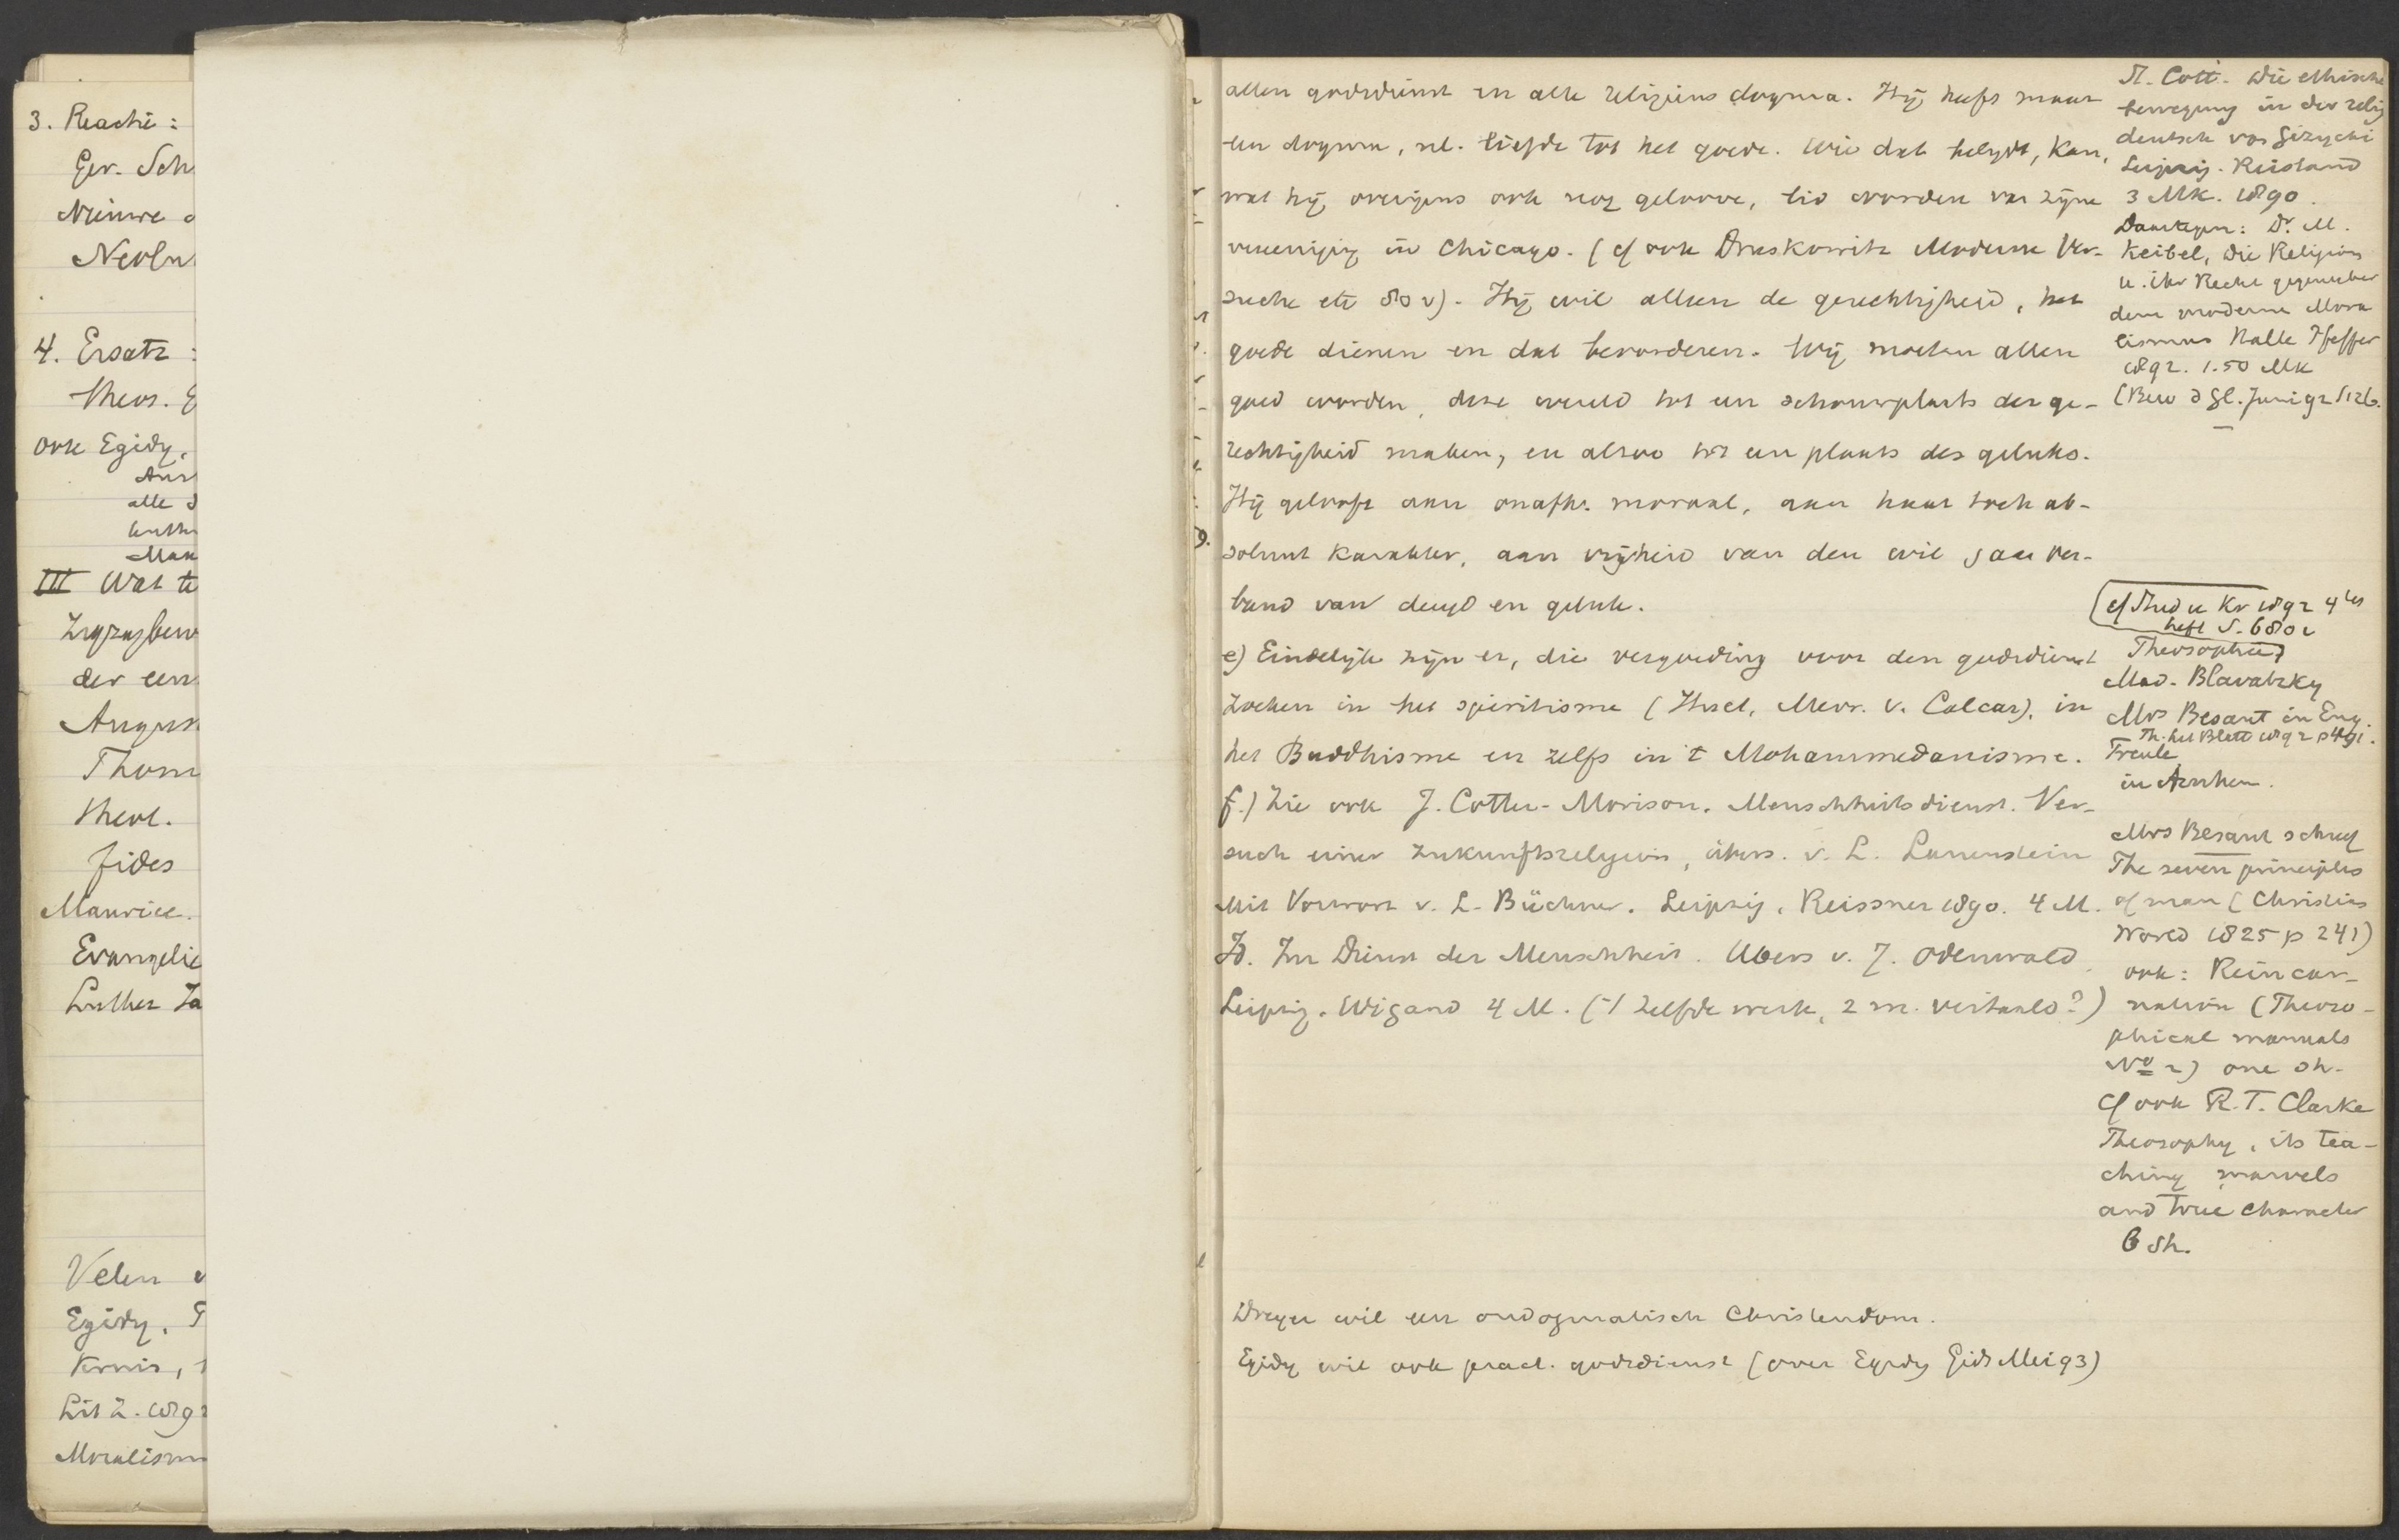 3. Reactie:
Ger. Sch
Nieuwe
Neolu
4. Ersatz:
theos. E
ook Egidy.
alle
luthe
III Wat te
der een
August
Thom
theol.
fides
Maurice.
Evangelie
Luther Za
Velen
Egidy.
Kruis,
Lit Z. 189
Moralism
allen godsdienst en alle religieus dogma. Hij heeft maar
een dogma, nl. liefde tot het goede. Wie dat belijdt, kan,
wat hij overigens ook nog geloove, lid worden van zijne
vereeniging in Chicago. (cf ook Druskowitz Moderne Ver-
suche etc 80 v). Hij wil alleen de gerechtigheid, het
goede dienen en dat bevorderen. Wij moeten allen
goed worden, deze wereld tot een schouwplaats der ge-
rechtigheid maken, en alzoo tot een plaats des geluks.
Hij gelooft aan onafh. moraal, aan haar toch ab-
soluut karakter, aan vrijheid van den wil, aan ver-
band van deugd en geluk.
e) Eindelijk zijn er, die vergoeding voor den godsdienst
zoeken in het spiritisme (Mevr. v. Calcar), in
het Buddhisme en zelfs in 't Mohammedanisme.
f.) Zie ook J. Cotter-Morison. Menschheitsdienst. Ver-
such einer Zukunftsreligion, übers. v. L. Lauenstein
Mit Vorwort v. L. Büchner. Leipzig, Reissner 1890. 4 M.
Id. Im Dienst der Menschheit. Übers v. J. Odenwald.
Leipzig. Wigand 4 M. ('t zelfde werk, 2 m. vertaald?)
Dreyer wil een ondogmatisch Christendom.
Egidy wil ook pract. godsdienst (over Egidy Gids Mei 93)
St. Coit. Die ethische
bewegung in der relig
deutsch von Gizycki
Leipzig. Reisland
3 Mk. 1890.
Daartegen: Dr. M.
Keibel, Die Religion
u. ihr Recht gegenueber
dem moderne Mora
lismus Halle Pfeffer
1892. 1.50 Mk
(Bew d Gl. Juni 92 S 226.
cf Stud u Kr 1892 4tes
heft S. 680 v
Theosophie,
Mad. Blavatzky
Mrs Besant in Eng.
Th. Lit Blatt 1892 p 491.
Freule
in Arnhem.
Mrs Besant schreef
The seven principles
of man (Christian
World 1825 p 241)
ook: Reincar-
nation (Theoso-
phical manuals
No 2) one sh.
Cf ook R. T. Clarke
Theosophy, its tea-
ching marvels
and true character
6 sh.